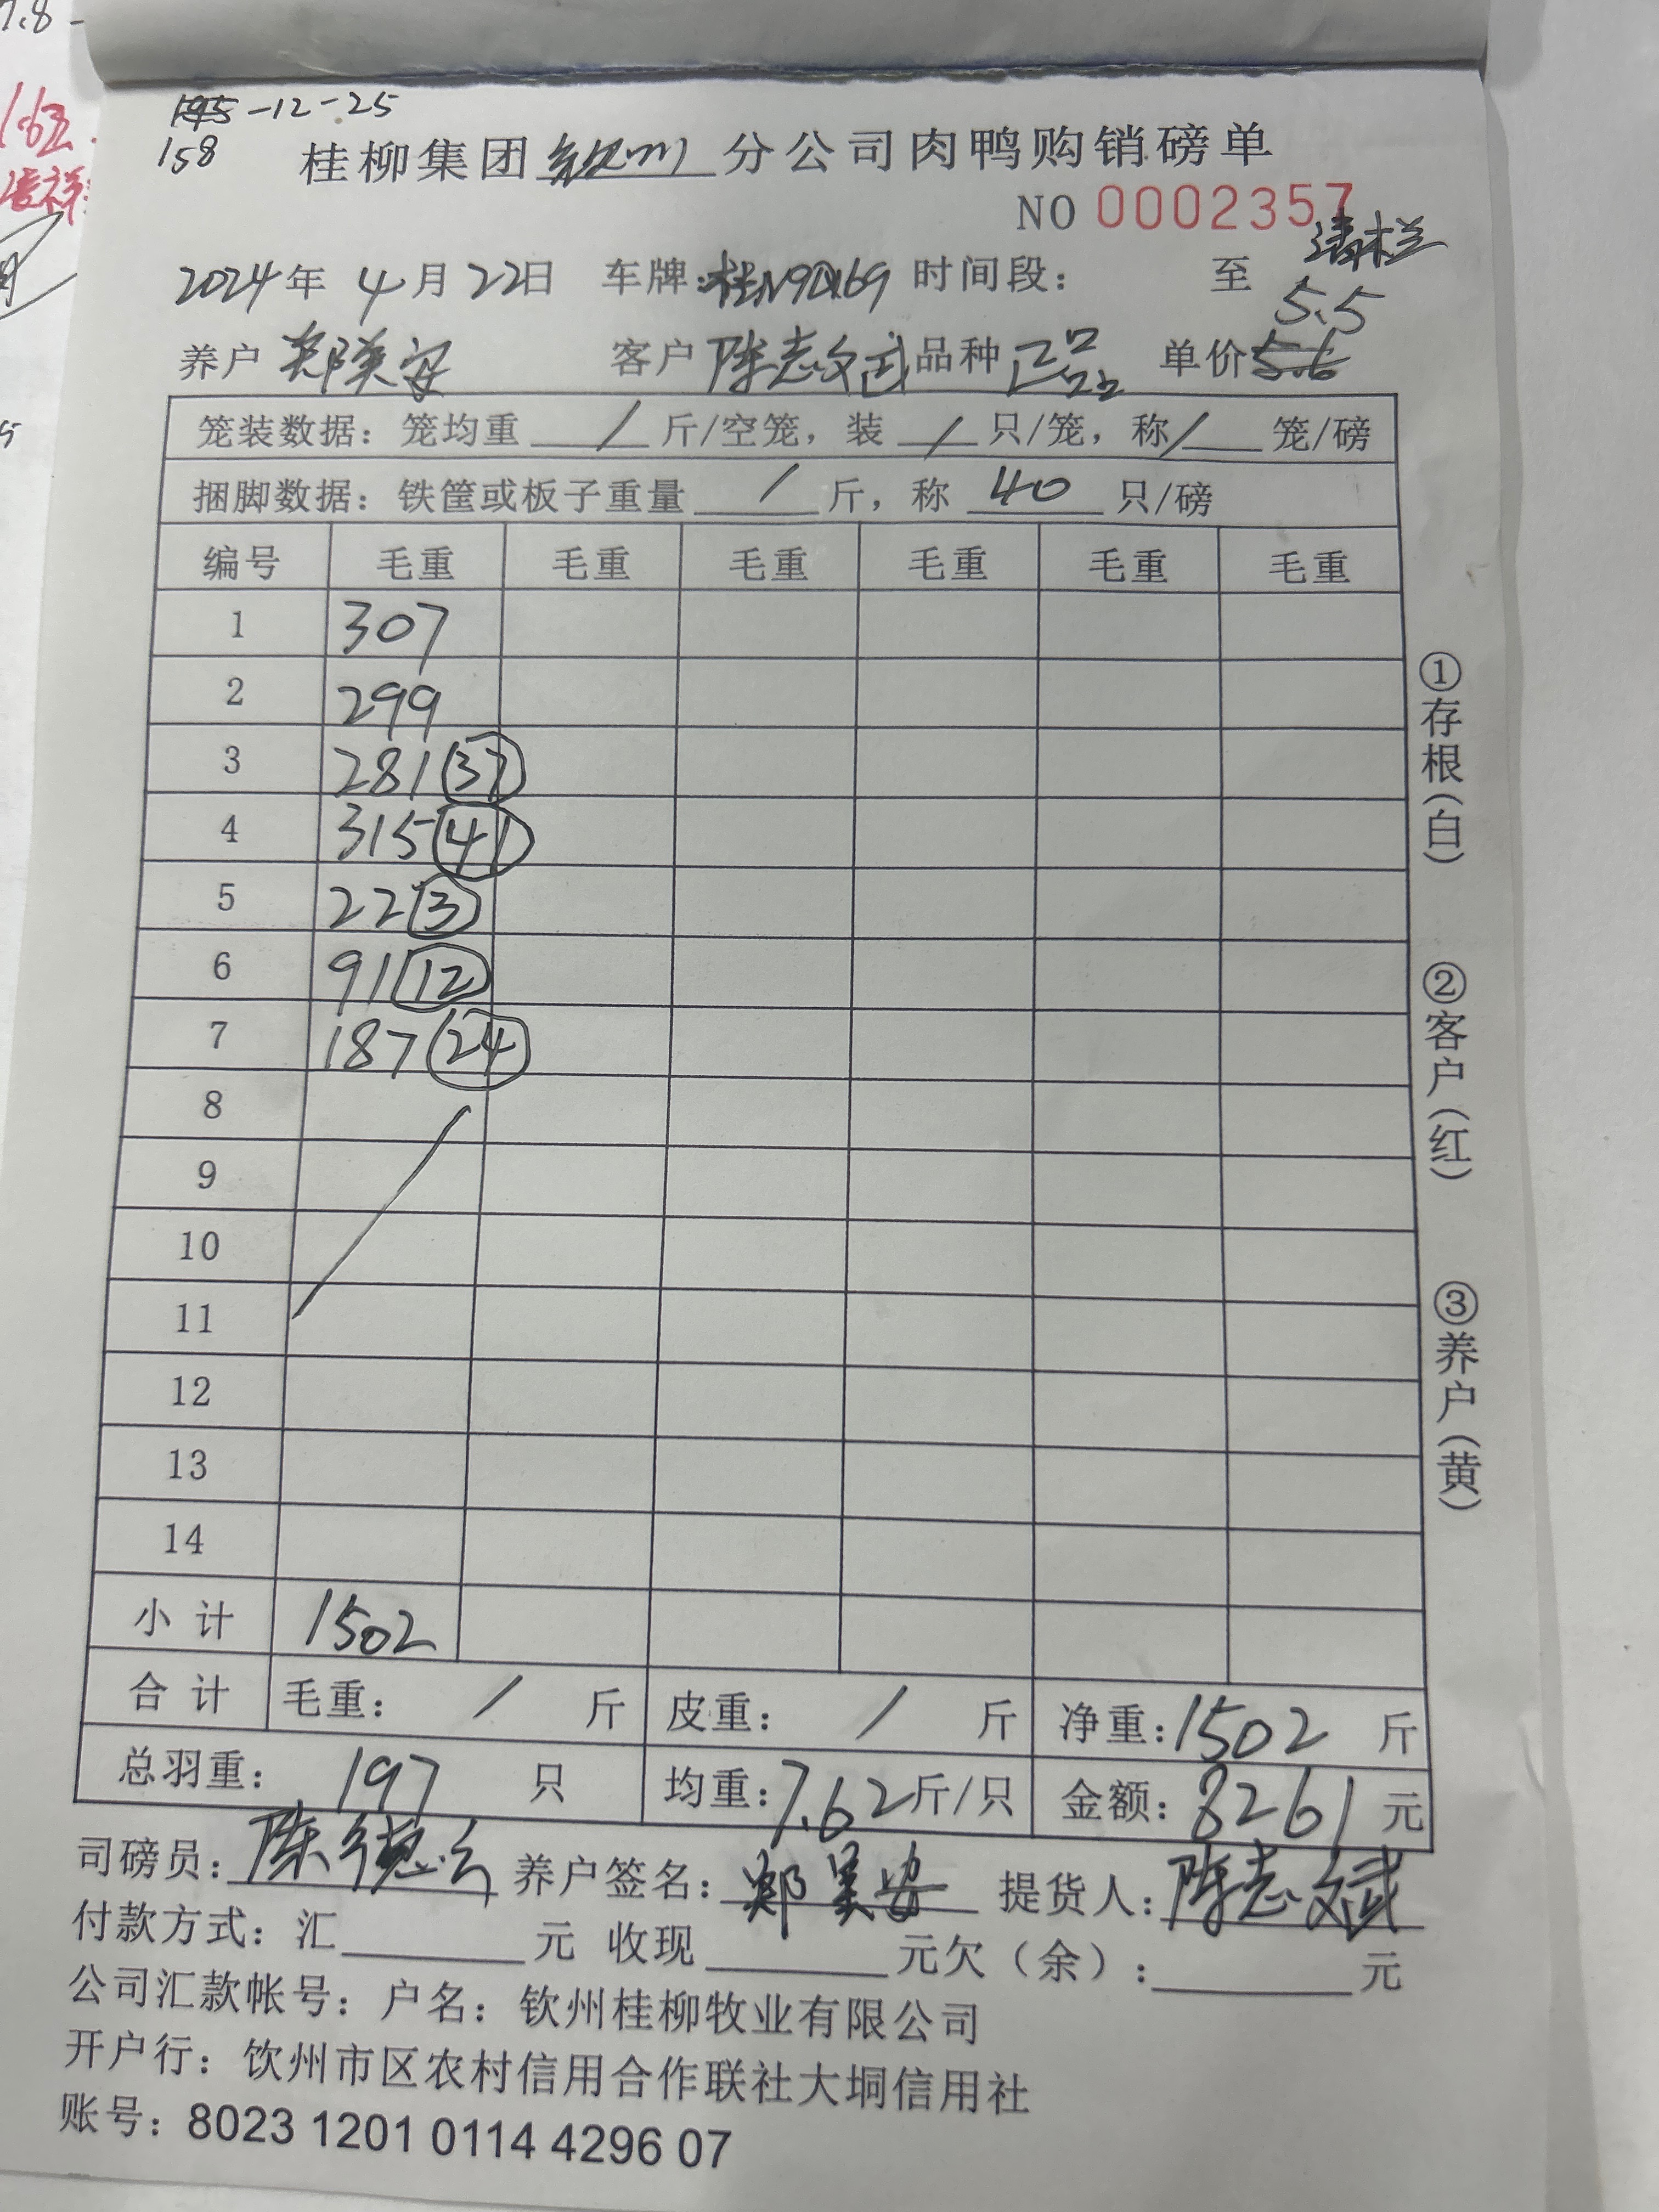 -12-25
158
桂柳集团钦州分公司肉鸭购销磅单
NO 0002357
清栏
2024年 4月22日 车牌:桂N9Q169 时间段: 至
5.5
养户 郑美安 客户 陈志斌 品种 正品 单价 5.6
笼装数据: 笼均重 / 斤/空笼, 装 / 只/笼, 称 / 笼/磅
捆脚数据: 铁筐或板子重量 / 斤, 称 40 只/磅
编号 毛重 毛重 毛重 毛重 毛重 毛重
1 307
2 299
3 281 (37)
4 315 (41)
5 22 (3)
6 91 (12)
7 187 (24)
8
9
10
11
12
13
14
小计 1502
合计 毛重: / 斤 皮重: / 斤 净重: 1502 斤
总羽重: 197 只 均重: 7.62 斤/只 金额: 8261 元
司磅员: 陈德云 养户签名: 郑美安 提货人: 陈志斌
付款方式: 汇 元 收现 元欠(余): 元
公司汇款帐号: 户名: 钦州桂柳牧业有限公司
开户行: 钦州市区农村信用合作联社大垌信用社
账号: 8023 1201 0114 4296 07
①存根(白)
②客户(红)
③养户(黄)